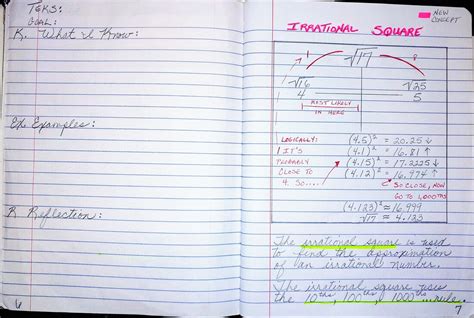 TEKS:
GOAL:
K. What I Know:
Ex. Examples:
R. Reflection:
6
NEW
CONCEPT
IRRATIONAL SQUARE
1 √17 8
√16 √25
4 5
MOST LIKELY
IN HERE
LOGICALLY: (4.5)² = 20.25 ↓
IT'S (4.1)² = 16.81 ↑
PROBABLY (4.15)² = 17.2225 ↓
CLOSE TO (4.12)² = 16.974 ↑
4. SO.... SO CLOSE, NOW
GO TO 1,000THS
(4.123)² ≈ 16.999
√17 ≈ 4.123
The irrational square is used
to find the approximation
of an irrational number.
The irrational square uses
the 10ths, 100ths, 1000ths... rule.
7